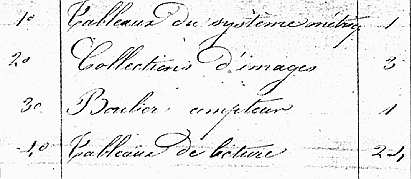 1° Tableaux du système métriq 1
2° Collections d'images 3
3° Boulier compteur 1
4° Tableaux de lecture 24